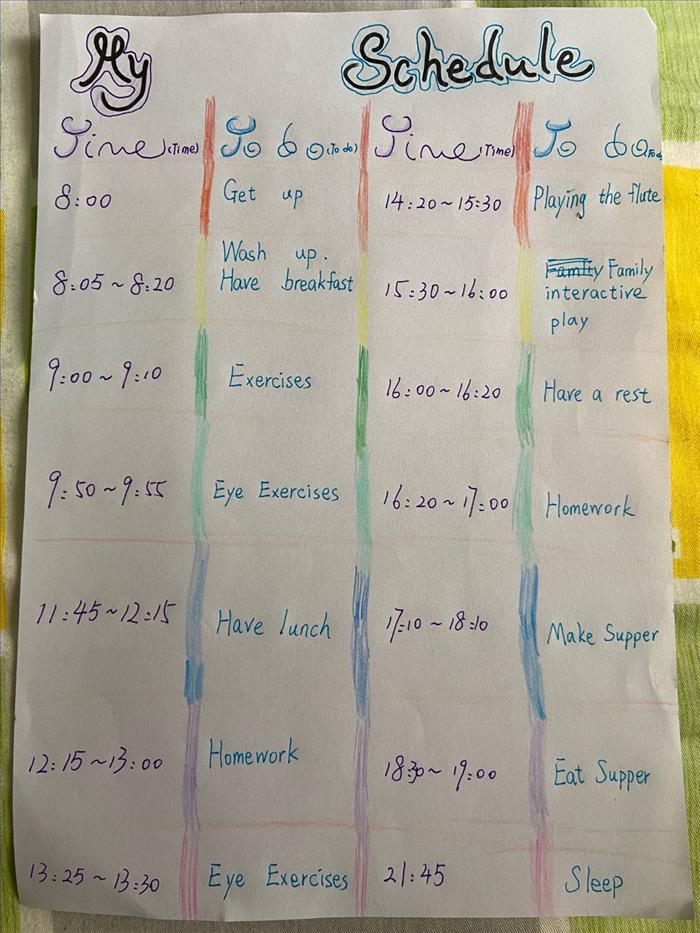 My Schedule
Time (Time) To do (To do) Time (Time) To do (To do)
8:00 Get up 14:20~15:30 Playing the flute
8:05~8:20 Wash up.
Have breakfast 15:30~16:00 Family
interactive
play
9:00~9:10 Exercises 16:00~16:20 Have a rest
9:50~9:55 Eye Exercises 16:20~17:00 Homework
11:45~12:15 Have lunch 17:10~18:10 Make Supper
12:15~13:00 Homework 18:30~19:00 Eat Supper
13:25~13:30 Eye Exercises 21:45 Sleep